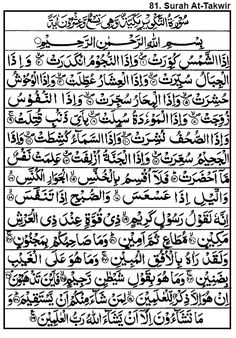 81. Surah At-Takwir
سُوْرَةُ التَّكْوِيْرِ مَكِّيَّةٌ وَهِيَ تِسْعٌ وَعِشْرُوْنَ اٰيَةً
بِسْمِ اللهِ الرَّحْمٰنِ الرَّحِيْمِ
اِذَا الشَّمْسُ كُوِّرَتْ وَاِذَا النُّجُوْمُ انْكَدَرَتْ وَاِذَا
الْجِبَالُ سُيِّرَتْ وَاِذَا الْعِشَارُ عُطِّلَتْ وَاِذَا الْوُحُوْشُ
حُشِرَتْ وَاِذَا الْبِحَارُ سُجِّرَتْ وَاِذَا النُّفُوْسُ
زُوِّجَتْ وَاِذَا الْمَوْءٗدَةُ سُئِلَتْ بِاَيِّ ذَنْۢبٍ قُتِلَتْ
وَاِذَا الصُّحُفُ نُشِرَتْ وَاِذَا السَّمَآءُ كُشِطَتْ وَاِذَا
الْجَحِيْمُ سُعِّرَتْ وَاِذَا الْجَنَّةُ اُزْلِفَتْ عَلِمَتْ نَفْسٌ
مَّآ اَحْضَرَتْ فَلَآ اُقْسِمُ بِالْخُنَّسِ الْجَوَارِ الْكُنَّسِ
وَالَّيْلِ اِذَا عَسْعَسَ وَالصُّبْحِ اِذَا تَنَفَّسَ
اِنَّهٗ لَقَوْلُ رَسُوْلٍ كَرِيْمٍ ذِيْ قُوَّةٍ عِنْدَ ذِي الْعَرْشِ
مَكِيْنٍ مُّطَاعٍ ثَمَّ اَمِيْنٍ وَمَا صَاحِبُكُمْ بِمَجْنُوْنٍ
وَلَقَدْ رَاٰهُ بِالْاُفُقِ الْمُبِيْنِ وَمَا هُوَ عَلَى الْغَيْبِ
بِضَنِيْنٍ وَمَا هُوَ بِقَوْلِ شَيْطٰنٍ رَّجِيْمٍ فَاَيْنَ تَذْهَبُوْنَ
اِنْ هُوَ اِلَّا ذِكْرٌ لِّلْعٰلَمِيْنَ لِمَنْ شَآءَ مِنْكُمْ اَنْ يَّسْتَقِيْمَ وَ
مَا تَشَآءُوْنَ اِلَّآ اَنْ يَّشَآءَ اللهُ رَبُّ الْعٰلَمِيْنَ